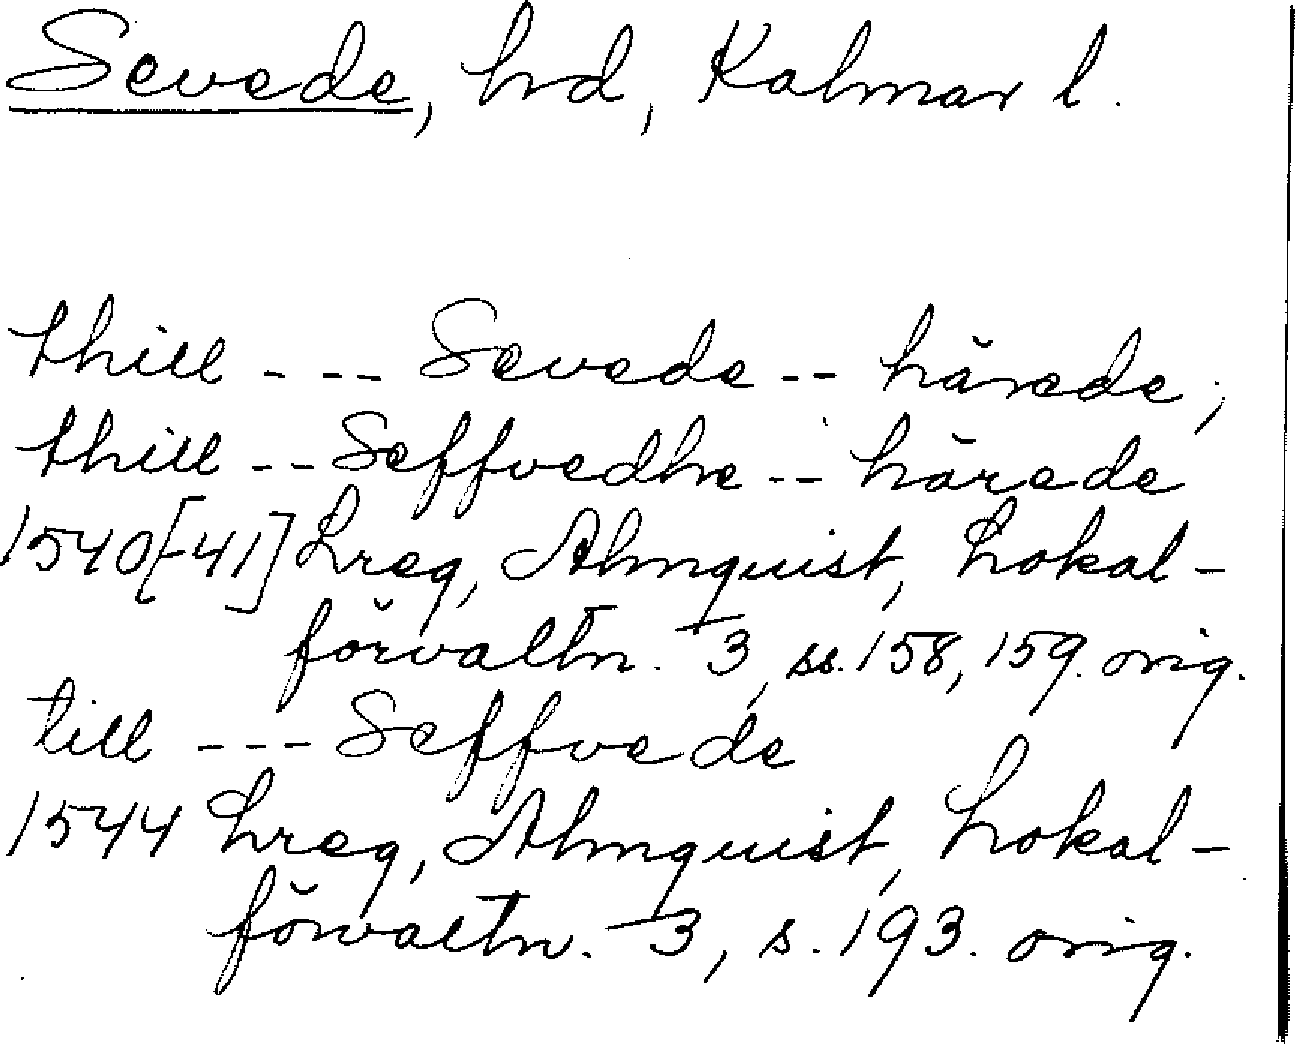 Sevede, hd, Kalmar l.
thill --- Sevede -- härede;
thill -- Seffvedhe -- härede
1540[-41] Lreg, Almquist, Lokal-
förvaltn. 3, ss. 158, 159. orig.
till --- Seffvede
1544 Lreg, Almquist, Lokal-
förvaltn. 3, s. 193. orig.